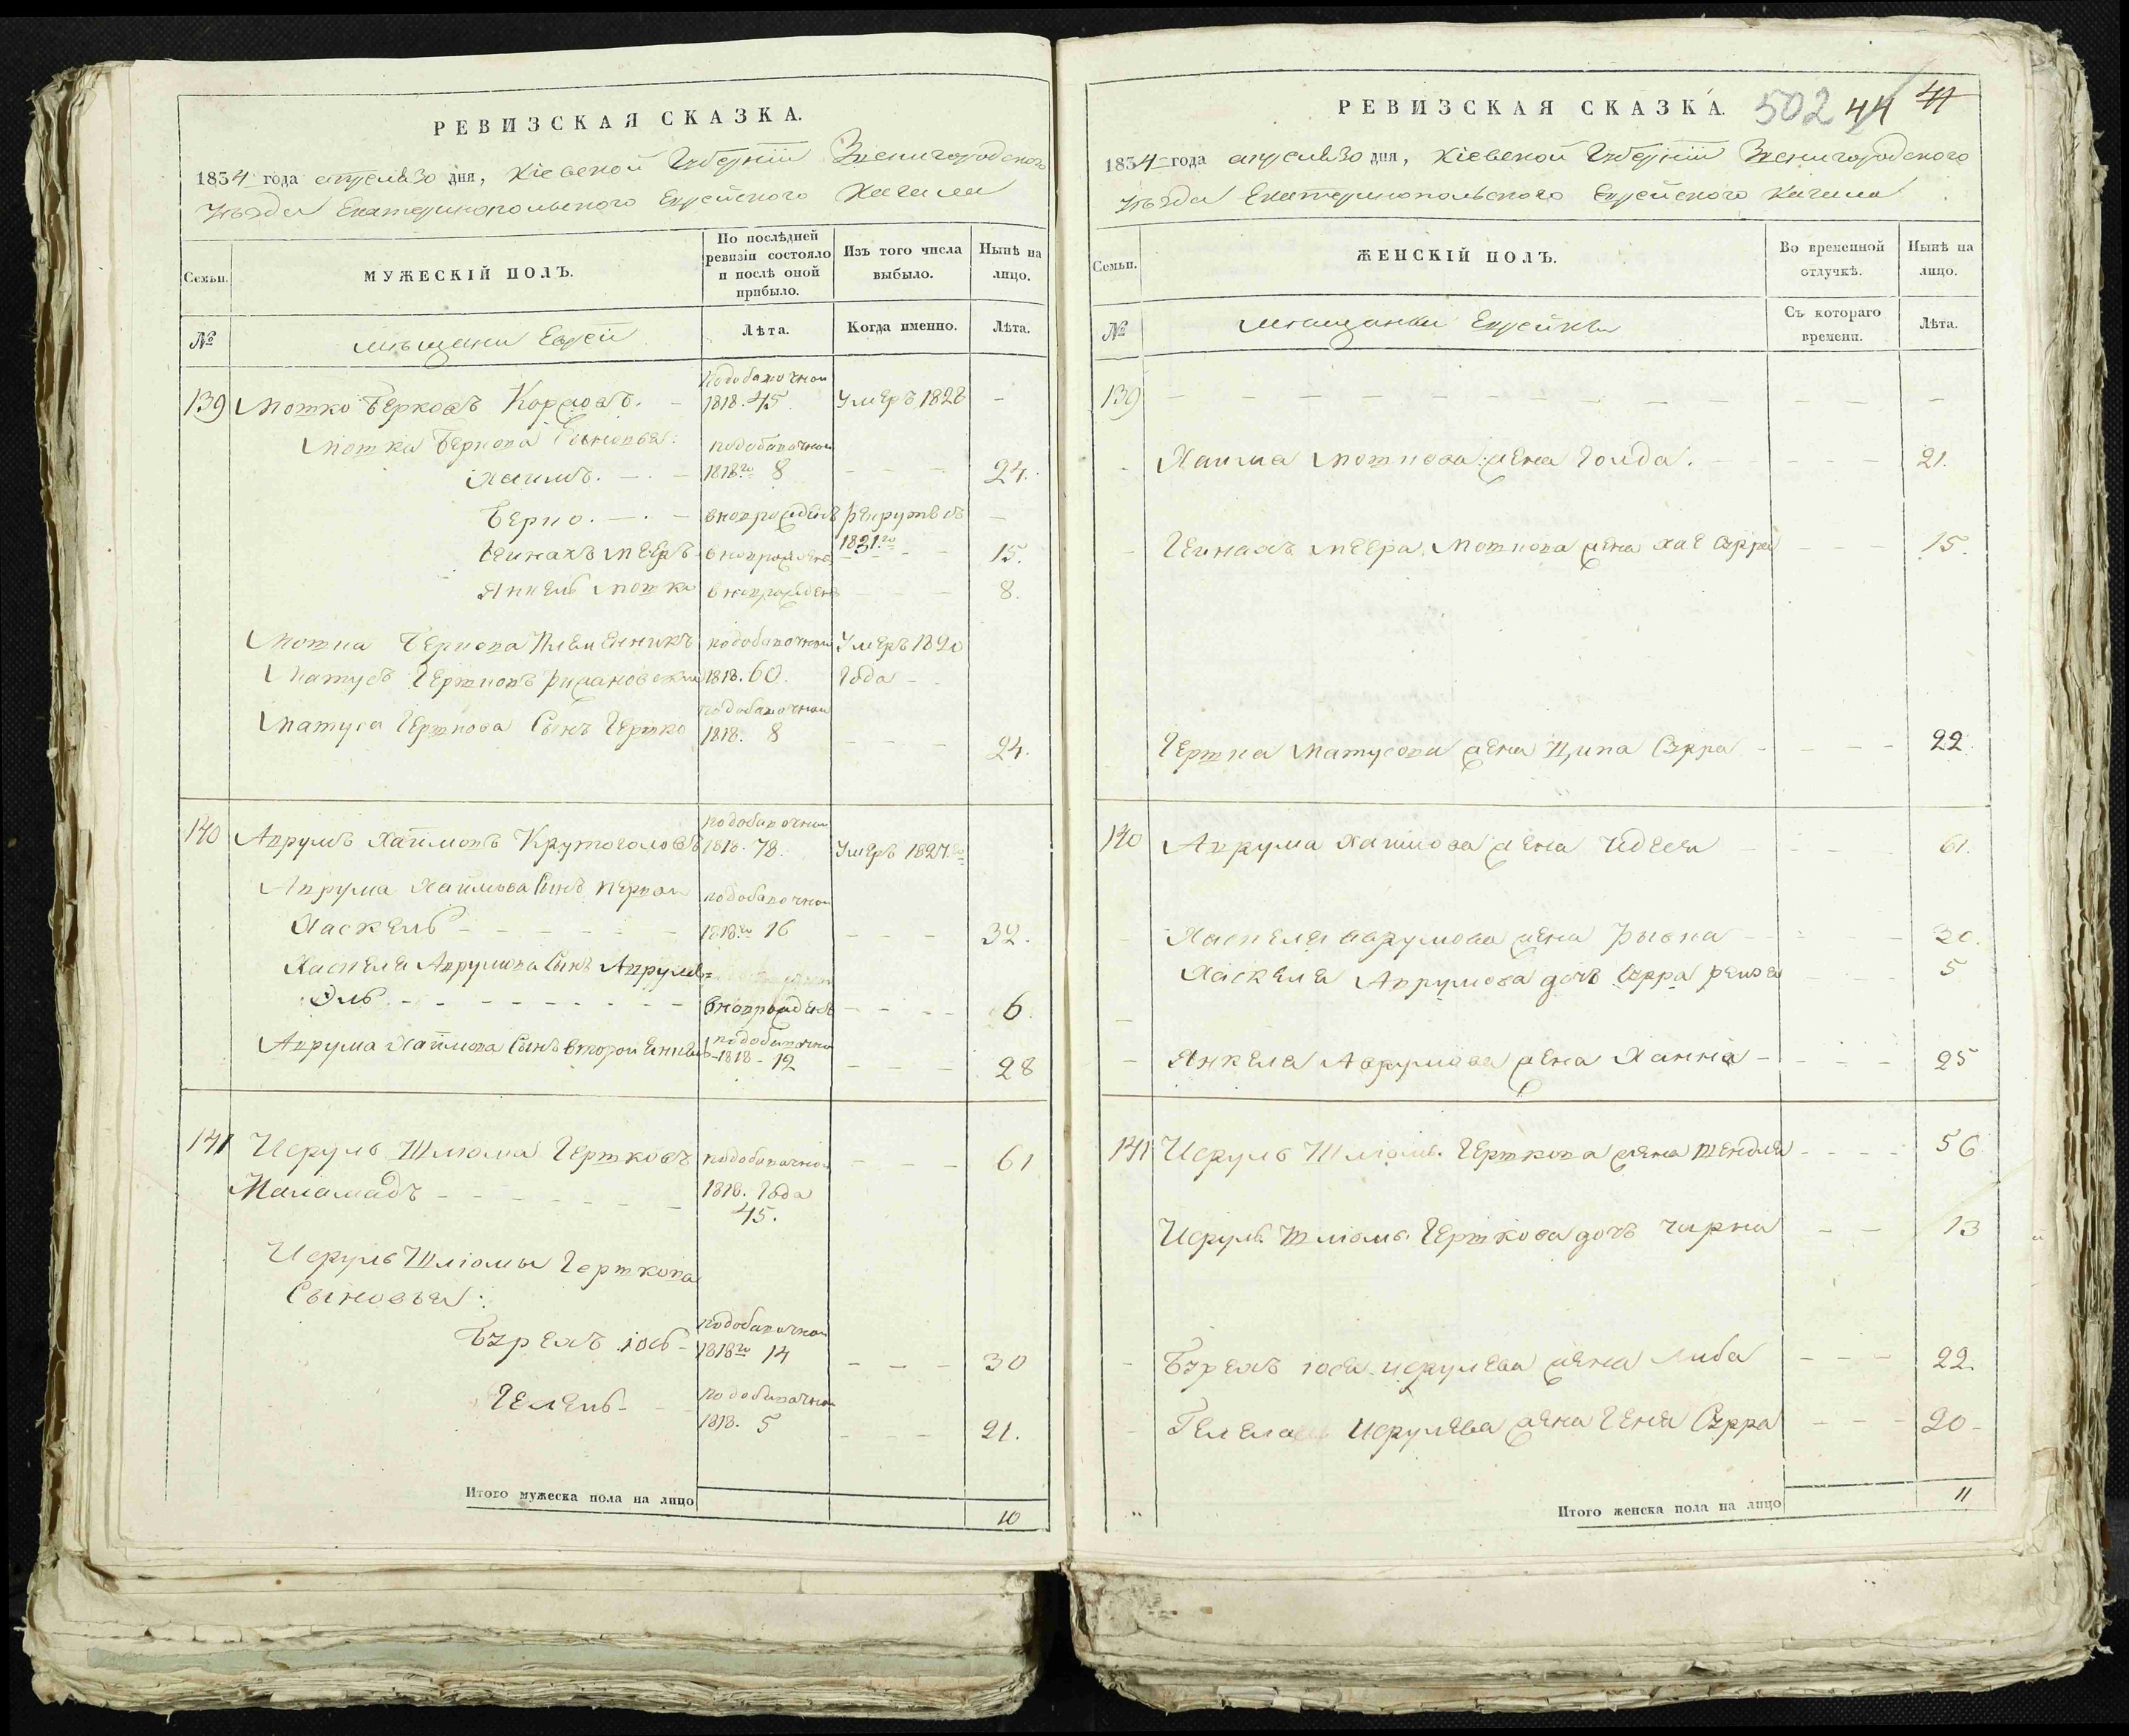 РЕВИЗСКАЯ СКАЗКА.
1834 года апреля 30 дня, Кіевской Губерніи Звенигородского
уѣзда Екатеринопольского Еврейского Кагала
Семьи.
МУЖЕСКІЙ ПОЛЪ.
По послѣдней ревизіи состояло и послѣ оной прибыло.
Изъ того числа выбыло.
Нынѣ на лицо.
№
мѣщани Евреи
Лѣта.
Когда именно.
Лѣта.
139 Мошко Берковъ
подобавочной
1818. 45
Умеръ 1828 -
Мошка Беркова Сыновья:
подобавочной
Хаимъ. - - 1818го 8 - - - 24.
Берко. - - вновърожденъ рекрутъ въ 1831го -
Мееръ вновърожденъ - - 15.
Янкель Мошка вновърожденъ - - - 8.
Мошка Беркова Племенникъ подобавочной Умеръ 1820
Матусъ Гершковъ 1818. 60. Года -
подобавочной
Матуса Гершкова Сынъ Гершко 1818. 8 - - - 24.
подобавочной
140 Аврумъ Хаимовъ Крутоголовъ 1818. 78. Умеръ 1827го
Аврума Хаимова Сынъ первой подобавочной
Хаскель - - - - - - 1818го 16 - - - 32.
Хаскеля Аврумова Сынъ Аврумъ=
Эль - - - - - - - - - вновърожденъ - - - - 6.
Аврума Хаимова Сынъ второй Янкель подобавочной
1818 - 12 - - - 28
141 Исруль Шлюма Гершковъ подобавочной - - - 61
Маламадъ - - - - - - 1818. Года
45.
Исруль Шліомы Гершкова
Сыновья:
подобавочной
Бэрехъ Іосъ - 1818го 14 - - - 30
Гелель - - подобавочной
1818. 5 - - - 21.
Итого мужеска пола на лицо
10
РЕВИЗСКАЯ СКАЗКА. 502 44 41
1834 года апреля 30 дня, Кіевской Губерніи Звенигородского
уѣзда Екатеринопольского Еврейского Кагала
Семьи.
ЖЕНСКІЙ ПОЛЪ.
Во временной отлучкѣ.
Нынѣ на лицо.
№
мѣщанки Еврейки
Съ котораго времени.
Лѣта.
139 - - - - - - - - - - - -
- Хаима Мошкова жена Голда. - - - - 21.
- Меера Мошкова жена Хае Сурра - - - 15.
Гершка Матусова жена Ципа Сурра - - - - 22.
140 Аврума Хаимова жена - - - - 61.
- Хаскеля Аврумова жена Рывка - - - - 30.
Хаскеля Аврумова дочъ Сурра Рейзя - - - 5
-
- Янкеля Аврумова жена Ханна - - - - 25
141 Исруль Шліома Гершкова жена Шендля - - - - 56
Исруль Шліома Гершкова дочъ Чарна - - 13
- Бэрехъ Іося Исрулева жена Либа - - - 22.
- Гелеля Исрулева жена Геня Сурра - - - 20 -
Итого женска пола на лицо
11